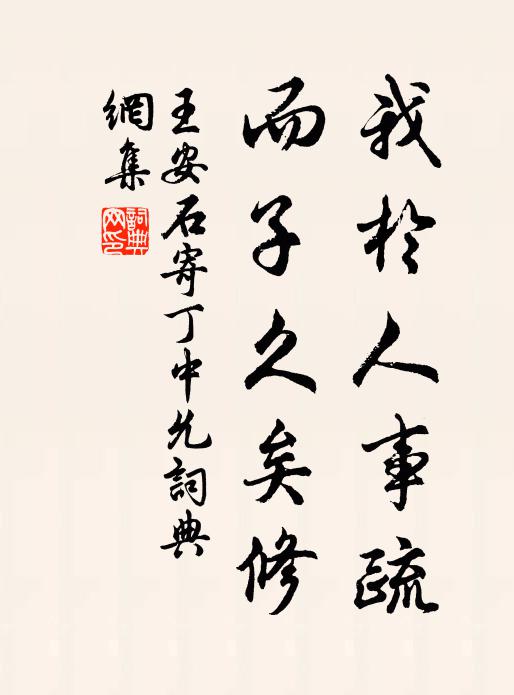 我於人事疏
而子久矣修
王安石寄丁中允詞典
網集
詞典網印